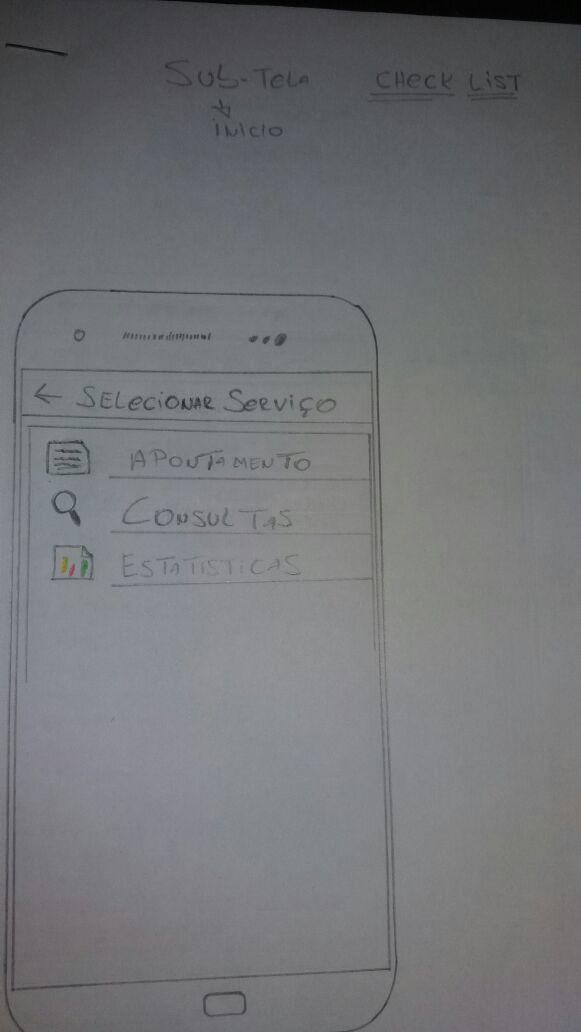 SUb-TelA CHecK LiST
iNiciO
← SELecioNAR SeRViçO
APONTAMENTO
CONSULTAS
ESTATISTiCAS